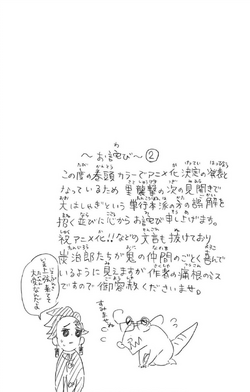 ～お詫び～②
この度の巻頭カラーでアニメ化決定の発表と
なっているため 里襲撃の次の見開きで
大はしゃぎという 単行本派の方の誤解を
招く並びに心からお詫び申し上げます。
祝アニメ化!!などの文言も抜けており
炭治郎たちが鬼の仲間のごとく喜んで
いるように見えますが 作者の痛恨のミス
ですので 御容赦くださいませ。
すみませぬ